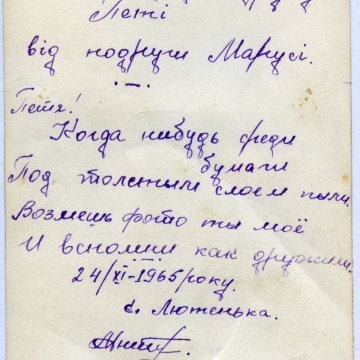 Петі
від подруги Марусі.
Петя!
Когда нибудь среди
бумаги
Под толстым слоем пыли.
Возмешь фото ты моё
И вспомни как дружили.
24/XI-1965 року.
с. Лютенька.